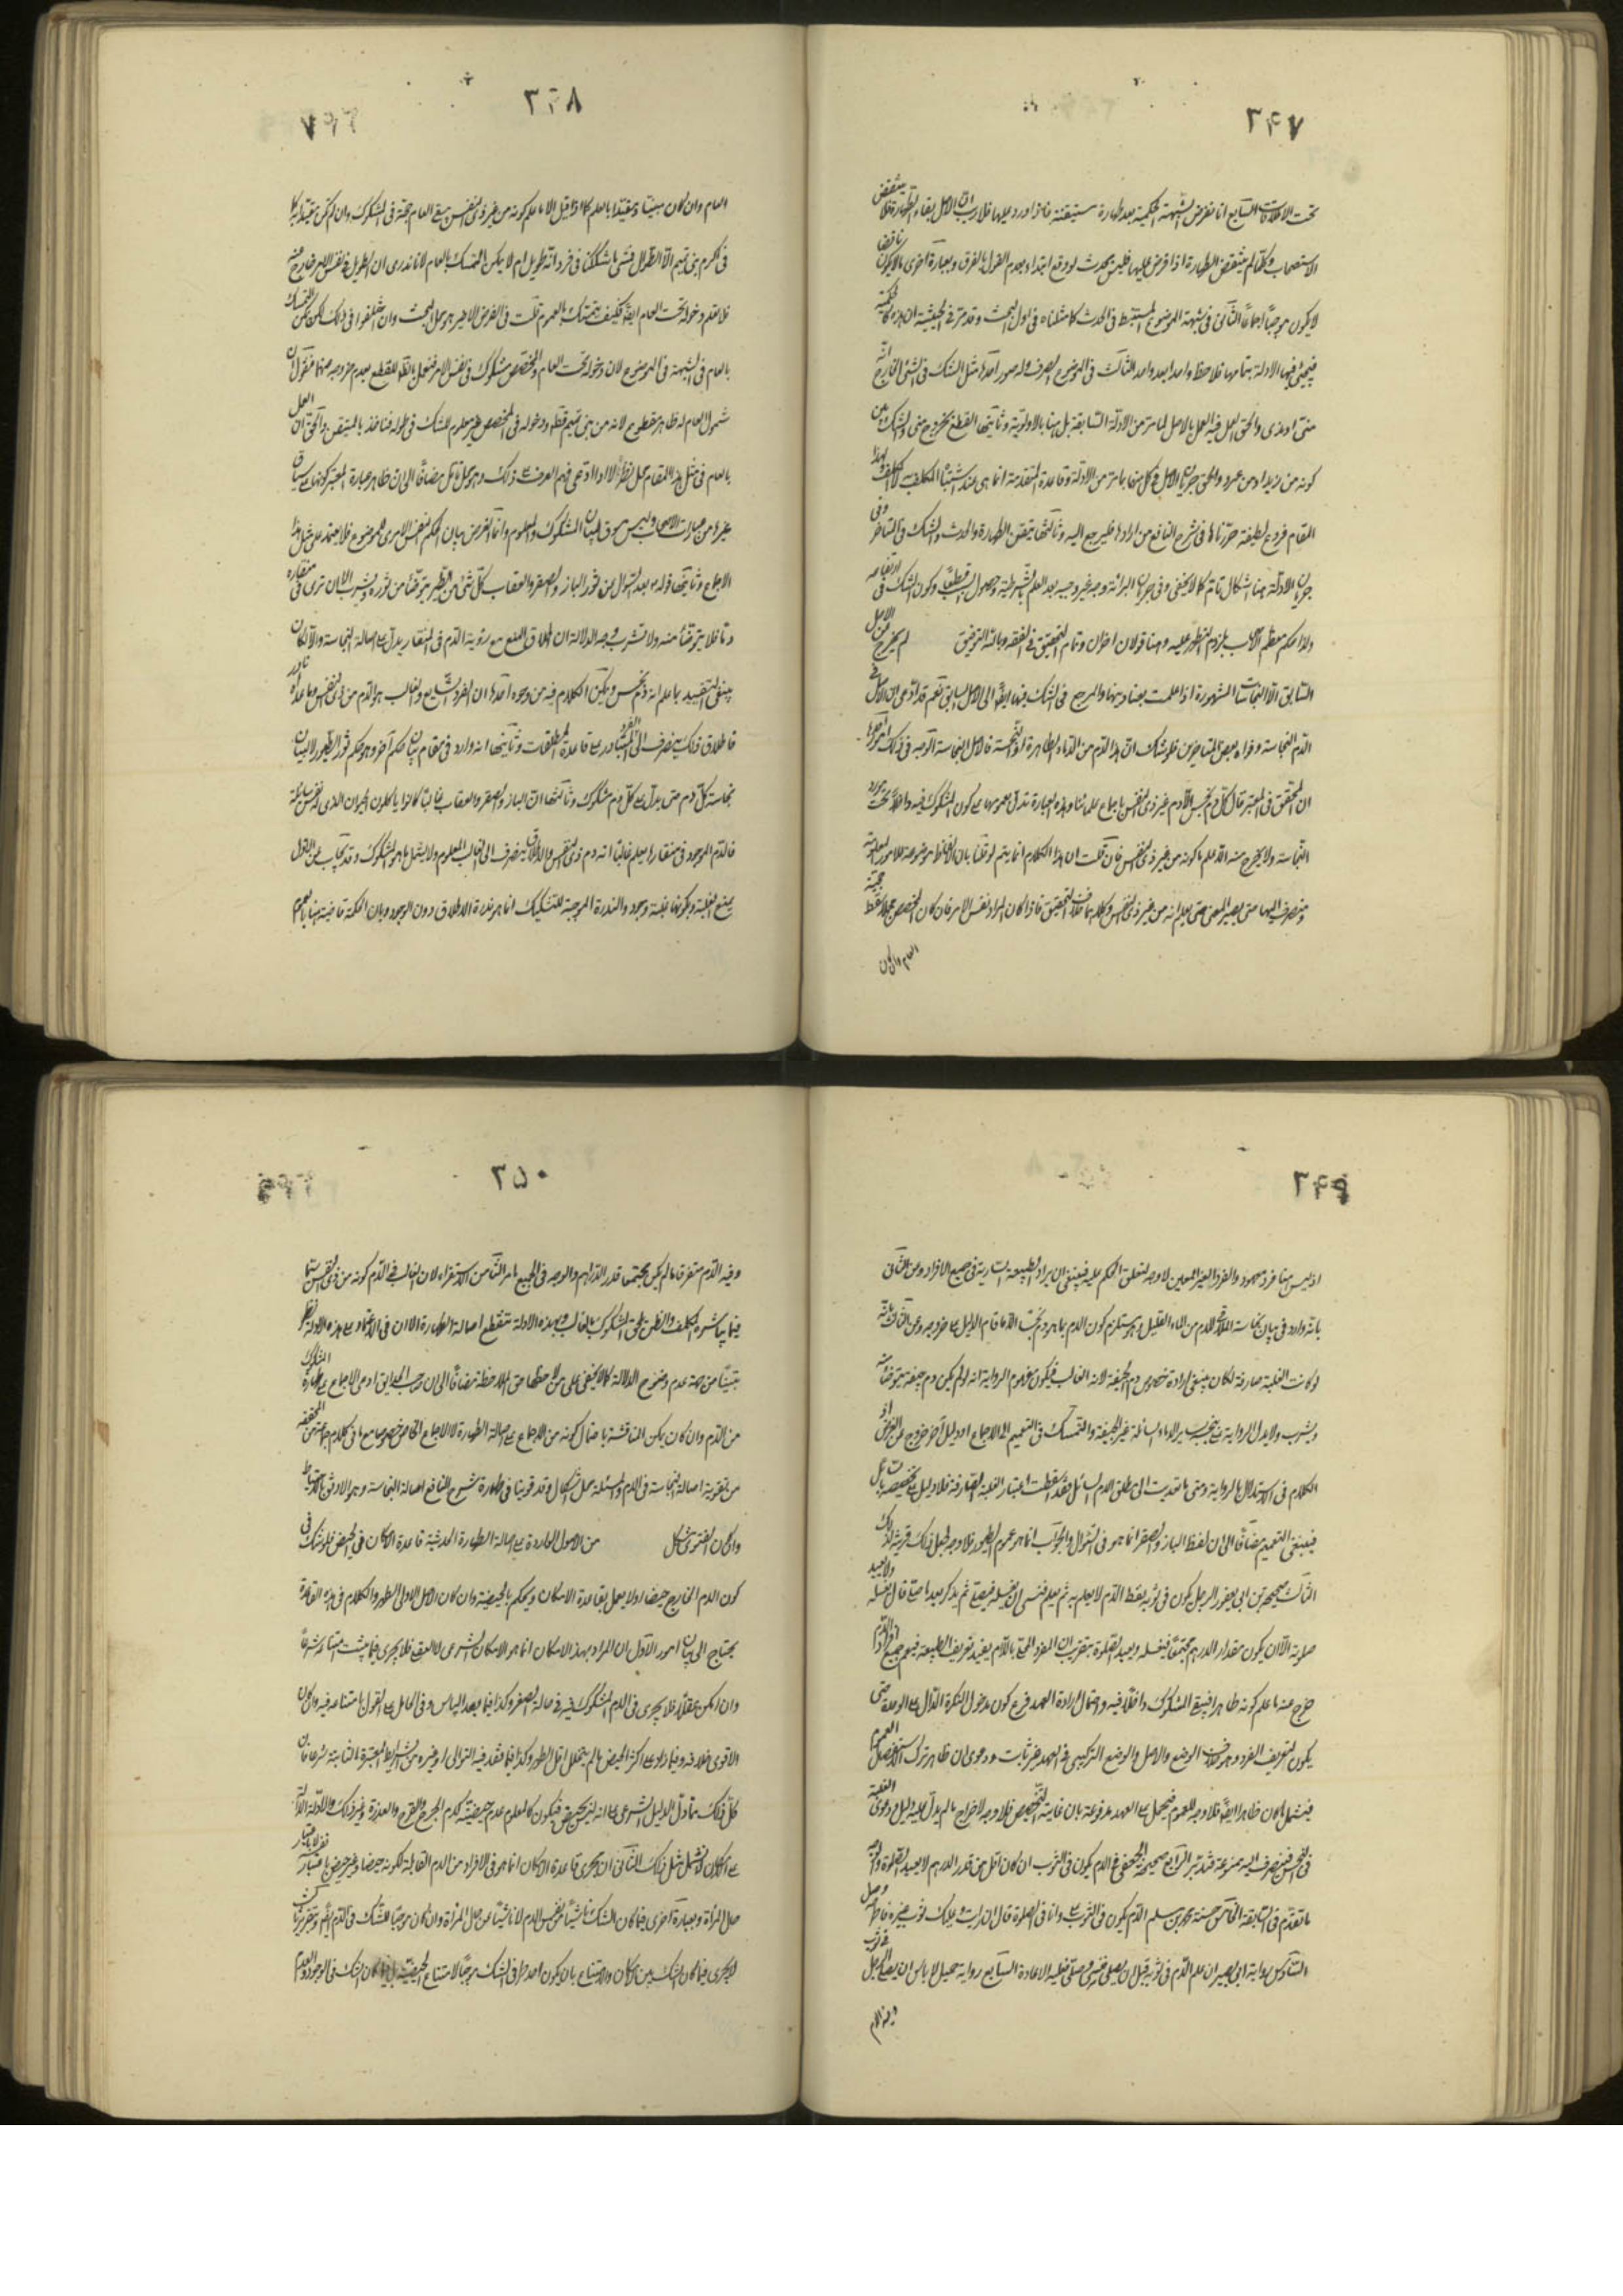 ٢٤٧
تحت الاطلاقات السابع انا نفرض الشبهة الحكمية بعد طهارة متيقنة فاذا ورد عليها فلا ريب ان الاصل بقاء الطهارة فلا ينتقض
الاستصحاب وكلما لم ينتقض الطهارة اذا فرض عليها فليس بحدث لو وقع ابتداء بعدم القول بالفرق وبعبارة اخرى ما لا يكون ناقضا
لا يكون موجبا اجماعا الثاني في شبهة الموضوع المستنبط في الحدث كما مثلناه في اول البحث وقد مر في الحقيقة ان هذه حكمية
فيجئ فيها الادلة بتمامها فلاحظ واحدا بعد واحد الثالث في الموضوع الصرف وله صور احدها مثل الشك في الشئ الخارج انه
مني او مذي والحق العمل فيه بالاصل لما مر من الادلة السابقة بل هنا بالاولوية وثانيها القطع بخروج مني والشك بين
كونه من زيد او من عمرو والحق جريان الاصل في كل منهما لما مر من الادلة وقاعدة المقدمة انما هي عند اشتباه المكلف به لا المكلف ولهذا
المقام فروع لطيفة حررناها في شرح النافع من ارادها فليرجع اليه وثالثها تيقن الطهارة والحدث والشك في المتاخر وفي
جريان الادلة هنا اشكال تام كما لا يخفى وفي جريان البرائة وجه غير وجيه بعد العلم بالشرطية وحصول السبب قطعا وكون الشك في ارتفاعه
ولذا حكم معظم الاصحاب بلزوم التطهر عليه وهنا قولان اخران وتمام التحقيق في الفقه وبالله التوفيق لم يخرج من الاصل
السابق الا النجاسات المشهورة اذا علمت بعناوينها والمرجع في الشك فيها ايضا الى الاصل السابق نعم قد ادعى ان الاصل في
الدم النجاسة وقواه بعض المتاخرين فلو شك ان هذا الدم من الدماء الطاهرة او النجسة فالاصل النجاسة الوجه في ذلك امور احدها
ان المحقق في المعتبر قال كل دم نجس الا دم غير ذي النفس باجماع علمائنا وهذه العبارة تدل بعمومها على كون المشكوك فيه داخلا تحت مورد
النجاسة ولا يخرج منه الا ما علم كونه من غير ذي النفس فان قلت ان هذا الكلام انما يتم لو قلنا بان الالفاظ موضوعة للامور المعلومة
ومنصرف اليها حتى يصير المعنى حتى يعلم انه من غير ذي النفس وكلاهما خلاف التحقيق فاذا كان المراد نفس الامر فان كان المخصص مجملا سقط حجية
العام وان كان
٢٤٨
العام وان كان مبينا ومقيدا بالعلم كما اذا قيل الا ما علم كونه من غير ذي النفس بقي العام حجة في المشكوك وان لم يكن مقيدا به كما
في اكرم بني تميم الا الطوال فشئ ما شككنا في فرد انه طويل ام لا يمكن التمسك بالعام لانا ندري ان الطويل في نفس الامر خارج منه
فلا نعلم دخوله تحت العام ايضا فكيف يتمسك بالعموم قلت في الفرض الاخير هو محل البحث وان اختلفوا في ذلك لكن يمكن التمسك
بالعام في الشبهة في الموضوع لان دخوله تحت العام والمخصص مشكوك في نفس الامر فنعمل بالظاهر للقطع بعدم خروجه منهما فنقول ان
شمول العام له ظاهر مقطوع لانه من بني تميم قطعا ودخوله في المخصص غير معلوم للشك في طوله فناخذ بالمتيقن والحق ان العمل
بالعام في مثل هذا المقام محل نظر الا اذا ادعى فهم العرف على ذلك وهو محل تامل مضافا الى ان ظاهر عبارة المعتبر كونها في سياق
غيرها من عبارات الاصحاب وليس مسوقا لبيان المشكوك والمعلوم وانما الغرض بيان الحكم النفس الامري للموضوع فلا يعتمد على مثل هذا
الاجماع وثانيها قوله بعد السؤال عن سؤر الباز والصقر والعقاب كل شئ من الطير يتوضأ من سؤره ويشرب الا ان ترى في منقاره
دما فلا يتوضأ منه ولا تشرب وجه الدلالة ان اطلاق المنع مع رؤية الدم في المنقار يدل على اصالة النجاسة والا لكان
ينبغي التقييد بما علم انه دم نجس ويمكن الكلام فيه من وجوه احدها ان الفرد الشايع والغالب هو الدم من ذي النفس وما عداه نادر
فاطلاق ذلك ينصرف الى الفرد المتبادر على قاعدة المطلقات وثانيها انه وارد في مقام بيان حكم آخر وهو حكم سؤر الطيور لا بيان
نجاسة كل دم حتى يدل على كل دم مشكوك وثالثها ان الباز والصقر والعقاب غالبا كانوا ياكلون الحيوان الذي له نفس سائلة
فالدم الموجود في منقارها يعلم غالبا انه دم ذي النفس والاطلاق ينصرف الى الغالب المعلوم ولا يشمل ما هو المشكوك وقد يجاب عن الاول
بمنع الغلبة وبكونها غلبة وجود والندرة الموجبة للتشكيك انما هو ندرة الاطلاق دون الوجود وبان الحكمة قاضية هنا بالعموم
٢٤٩
اذ ليس هنا فرد معهود والفرد الغير المعين لا وجه لتعلق الحكم عليه فينبغي ان يراد الطبيعة السارية في جميع الافراد وعن الثاني
بانه وارد في بيان نجاسة الملاقي للدم من الماء القليل وهو يستلزم كون الدم بما هو دم نجسا الا ما قام الدليل على خروجه وعن الثالث بانه
لو كانت الغلبة صارفة لكان ينبغي ارادة خصوص دم الجيفة لانه الغالب فيكون مفهوم الرواية انه لو لم يكن دم جيفة يتوضأ منه
ويشرب ولا يدل الرواية على تنجيس ساير الدماء السائلة غير الجيفة والتمسك في التعميم الى الاجماع او دليل آخر خروج عن الغرض اذ
الكلام في الاستدلال بالرواية ومتى ما تعديت الى مطلق الدم السائل فقد اسقطت اعتبار الغلبة الصارفة فلا دليل على تخصيصه بالسائل
فينبغي التعميم مضافا الى ان لفظ الباز والصقر انما هو في السؤال والجواب انما هو عموم الطيور فلا وجه لجعل ذلك قرينة لذلك
الثالث صحيحة ابن ابي يعفور الرجل يكون في ثوبه نقط الدم لا يعلم به ثم يعلم فنسي ان يغسله فيصلي ثم يذكر بعد ما صلى قال يغسله ولا يعيد
صلوته الا ان يكون مقدار الدرهم مجتمعا فيغسله ويعيد الصلوة بتقريب ان المفرد المحلى باللام يفيد تعريف الطبيعة فيعم جميع افراد الدم اذا
خرج منه ما علم كونه طاهرا فيبقى المشكوك داخلا فيه واحتمال ارادة العهد فرع كون مدخول النكرة الدال على الوحدة حتى
يكون لتعريف الفرد وهو خلاف الوضع والاصل والوضع التركيبي في العهد غير ثابت ودعوى ان ظاهر ترك الاستفصال العموم
فيشمل ما كان ظاهرا ايضا فلا وجه للعموم فيحمل على العهد مدفوعة بان غايته التخصيص فلا وجه لاخراج ما لم يدل عليه دليل ودعوى الغلبة
في النجس فينصرف اليه ممنوعة فتدبر الرابع صحيحة الجعفي في الدم يكون في الثوب ان كان اقل من قدر الدرهم لا يعيد الصلوة والتقريب
ما تقدم في السابقة الخامس حسنة محمد بن مسلم الدم يكون في الثوب علي وانا في الصلوة قال ان رايت وعليك ثوب غيره فاطرحه وصل
السادس رواية ابي بصير ان علم الدم في ثوبه قبل ان يصلي فنسي وصلى فعليه الاعادة السابع رواية جميل لا باس ان يصلي الرجل في ثوب
وفيه الدم
٢٥٠
وفيه الدم متفرقا ما لم يكن مجتمعا قدر الدرهم والوجه في الجميع ما مر الثامن الاستقراء لان الغالب في الدم كونه من ذي النفس سيما
فيما يباشره المكلف والظن يلحق المشكوك بالغالب وبهذه الادلة تنقطع اصالة الطهارة الا ان في الاعتماد على هذه الادلة نظر
بينا من جهة عدم وضوح الدلالة كما لا يخفى على من لاحظها حق الملاحظة مضافا الى ان صاحب الحدايق ادعى الاجماع على طهارة المشكوك
من الدم وان كان يمكن المناقشة باحتمال كونه من الاجماع على اصالة الطهارة لا الاجماع الخاص خصوصا مع ما في كلام جماعة من المحققة
من تقوية اصالة النجاسة في الدم والمسئلة محل اشكال وقد قوينا في طهارة شرح النافع اصالة النجاسة وهو الاوفق بالاحتياط
وان كان الفتوى مشكل من الاصول الواردة على اصالة الطهارة الحدثية قاعدة الامكان في الحيض فلو شك في
كون الدم الخارج حيضا او لا يعمل بقاعدة الامكان ويحكم بالحيضية وان كان الاصل الاولى الطهر والكلام في هذه القاعدة
يحتاج الى بيان امور الاول ان المراد بهذا الامكان انما هو الامكان الشرعي لا العقلي فلا يجري فيما يثبت امتناعه شرعا
وان امكن عقلا فلا يجري في الدم المشكوك فيه في حالة الصغر وكذا فيما بعد الياس وفي الحامل على القول بامتناعه فيه وان كان
الاقوى خلافه وفيما زاد على اكثر الحيض ما لم يتخلل اقل الطهر وكذا فيما فقد فيه التوالي او غيره من الشرايط المعتبرة الثابتة شرعا فان
كل ذلك مما دل الدليل الشرعي على انه ليس بحيض فيكون كالمعلوم عدم حيضيته كدم الجرح والقرح والعذرة وغير ذلك والادلة الدالة
على الامكان لا تشمل مثل ذلك الثاني ان مجرى قاعدة الامكان انما هو في الافراد من الدم القابلة لكونه حيضا وغير حيض باعتبار نفسه لا باعتبار
حال المراة وبعبارة اخرى فيما كان الشك ناشئا من نفس الدم لا ناشئا من حال المراة وان كان موجبا للشك في الدم ايضا وتقريره انها
لا يجري فيما كان الشك بين الامكان والامتناع بان يكون احد طرفي الشك موجبا لامتناع الحيضية بل فيما كان الشك في الوجود والعدم